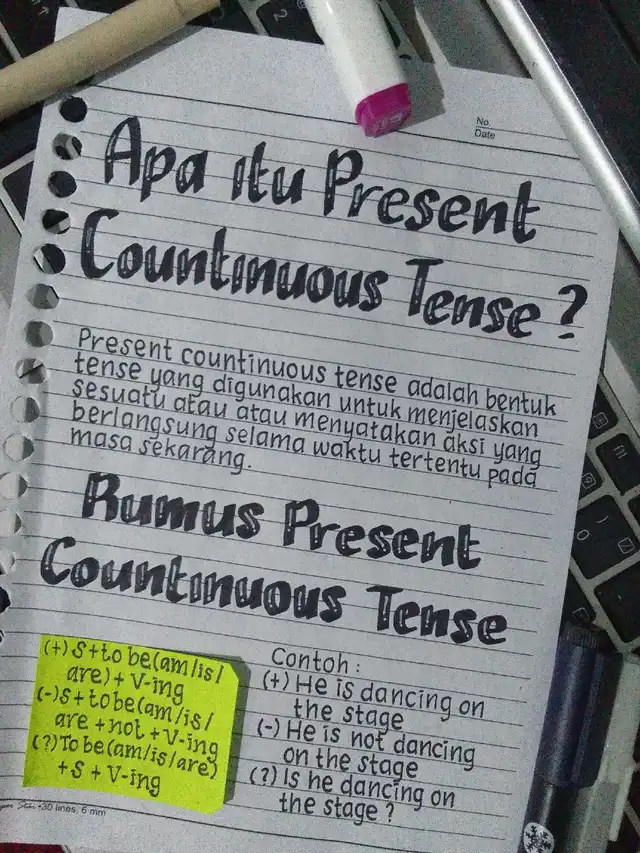 No.
Date
Apa itu Present
Countinuous Tense?
Present countinuous tense adalah bentuk
tense yang digunakan untuk menjelaskan
sesuatu atau atau menyatakan aksi yang
berlangsung selama waktu tertentu pada
masa sekarang.
Rumus Present
Countinuous Tense
(+) S+to be(am/is/
are) + V-ing
(-)S+tobe(am/is/
are +not +V-ing
(?)To be(am/is/are)
+S + V-ing
Contoh :
(+) He is dancing on
the stage
(-) He is not dancing
on the stage
(?) Is he dancing on
the stage ?
•30 lines, 6 mm